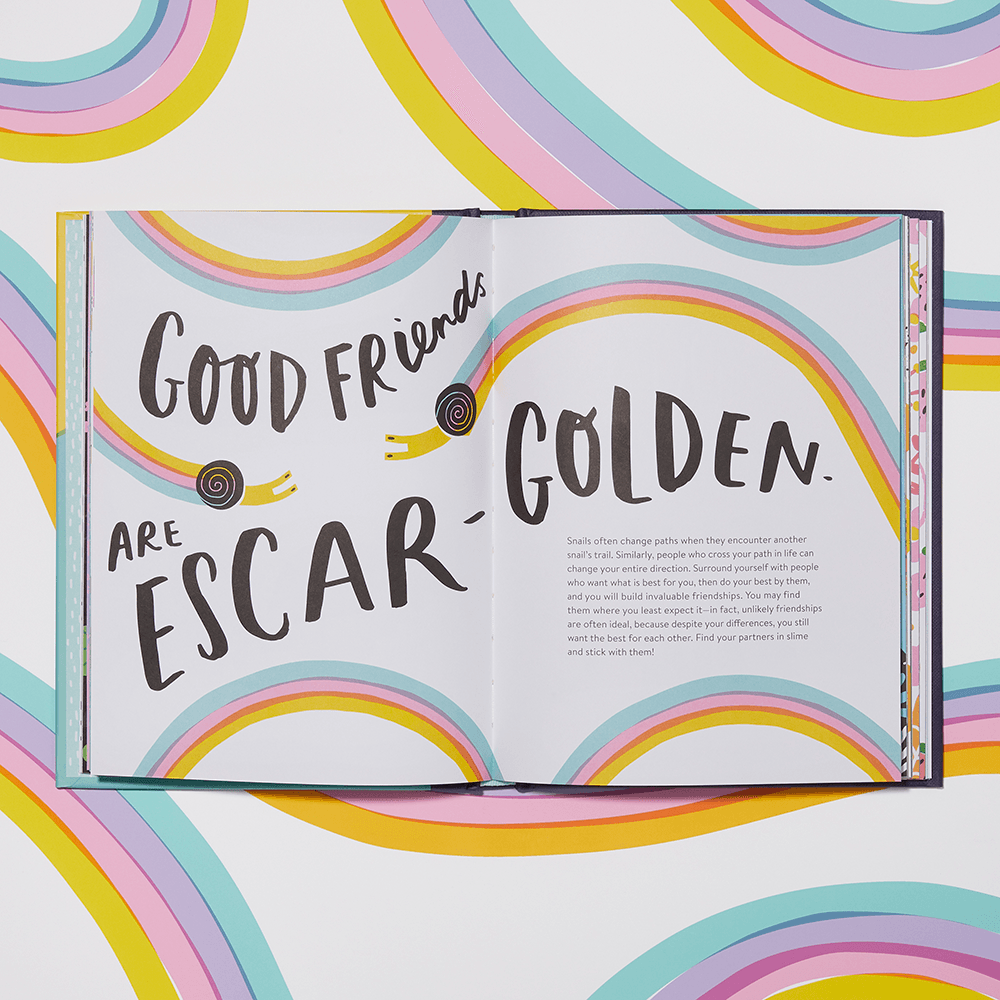 GOOD FRiends
ARE
ESCAR-
GOLDEN.
Snails often change paths when they encounter another
snail's trail. Similarly, people who cross your path in life can
change your entire direction. Surround yourself with people
who want what is best for you, then do your best by them,
and you will build invaluable friendships. You may find
them where you least expect it—in fact, unlikely friendships
are often ideal, because despite your differences, you still
want the best for each other. Find your partners in slime
and stick with them!